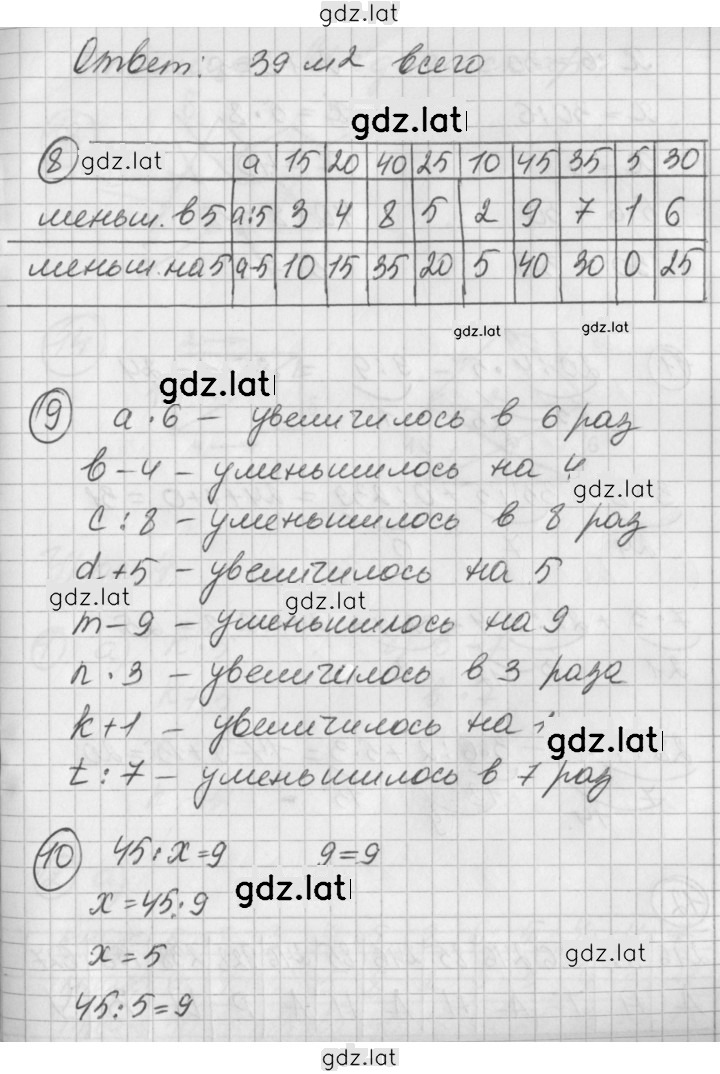 gdz.lat
Ответ: 39 м2 всего
gdz.lat
8 gdz.lat а 15 20 40 25 10 45 35 5 30
меньш. в 5 а:5 3 4 8 5 2 9 7 1 6
меньш. на 5 а-5 10 15 35 20 5 40 30 0 25
gdz.lat gdz.lat
gdz.lat
9 а · 6 – увеличилось в 6 раз
в – 4 – уменьшилось на 4
gdz.lat
с : 8 – уменьшилось в 8 раз
d + 5 – увеличилось на 5
gdz.lat gdz.lat
m – 9 – уменьшилось на 9
n · 3 – увеличилось в 3 раза
k + 1 – увеличилось на
gdz.lat
t : 7 – уменьшилось в 7 раз
10 45 : x = 9 9 = 9
gdz.lat
x = 45 : 9
x = 5
gdz.lat
45 : 5 = 9
gdz.lat